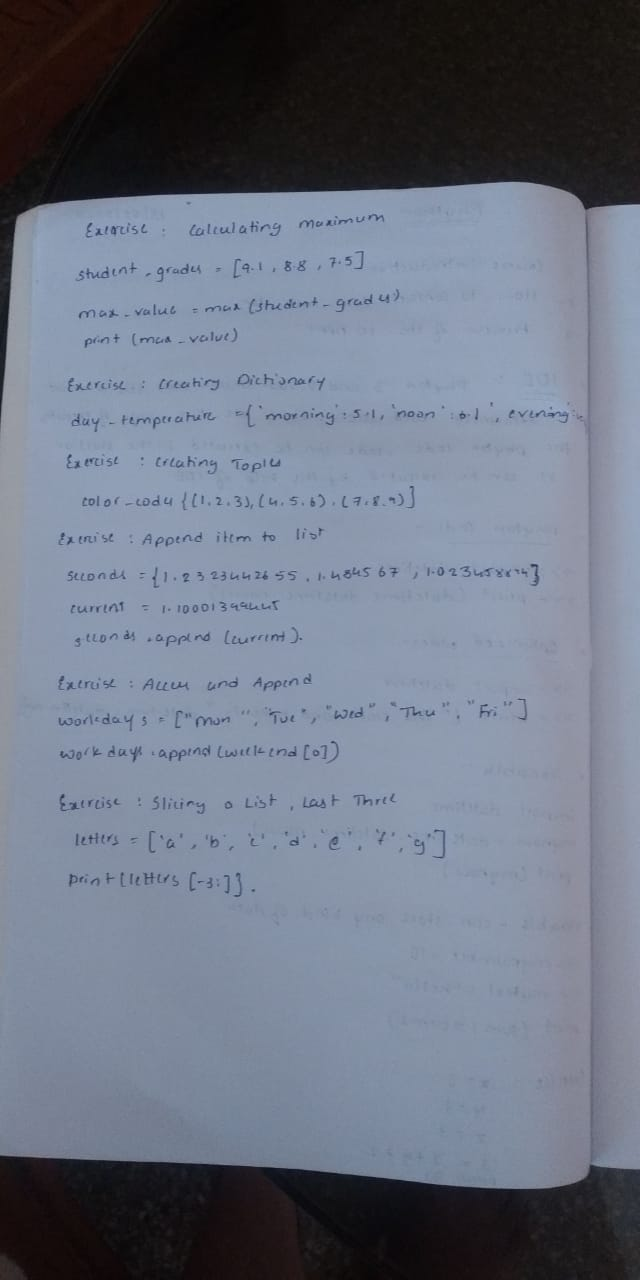 Exercise : Calculating maximum
student_grades = [9.1, 8.8, 7.5]
max_value = max (student_grades)
print (max_value)
Exercise : Creating Dictionary
day_temperature = {'morning': 5.1, 'noon': 6.1', evening:
Exercise : Creating Tople
color_codes {(1,2,3),(4,5,6).(7.8.9)]
Exercise : Append item to list
seconds = {1.2323442655, 1.484567,
current =
seconds.append (current).
Exercise : Access and Append
workdays = ["Mon", "Tue", "Wed", "Thu", "Fri"]
workdays.append (weekend [0])
Exercise : Slicing a List, Last Three
letters = ['a', 'b', 'c', 'd', 'e', 'f', 'g']
print(letters [-3:]}.